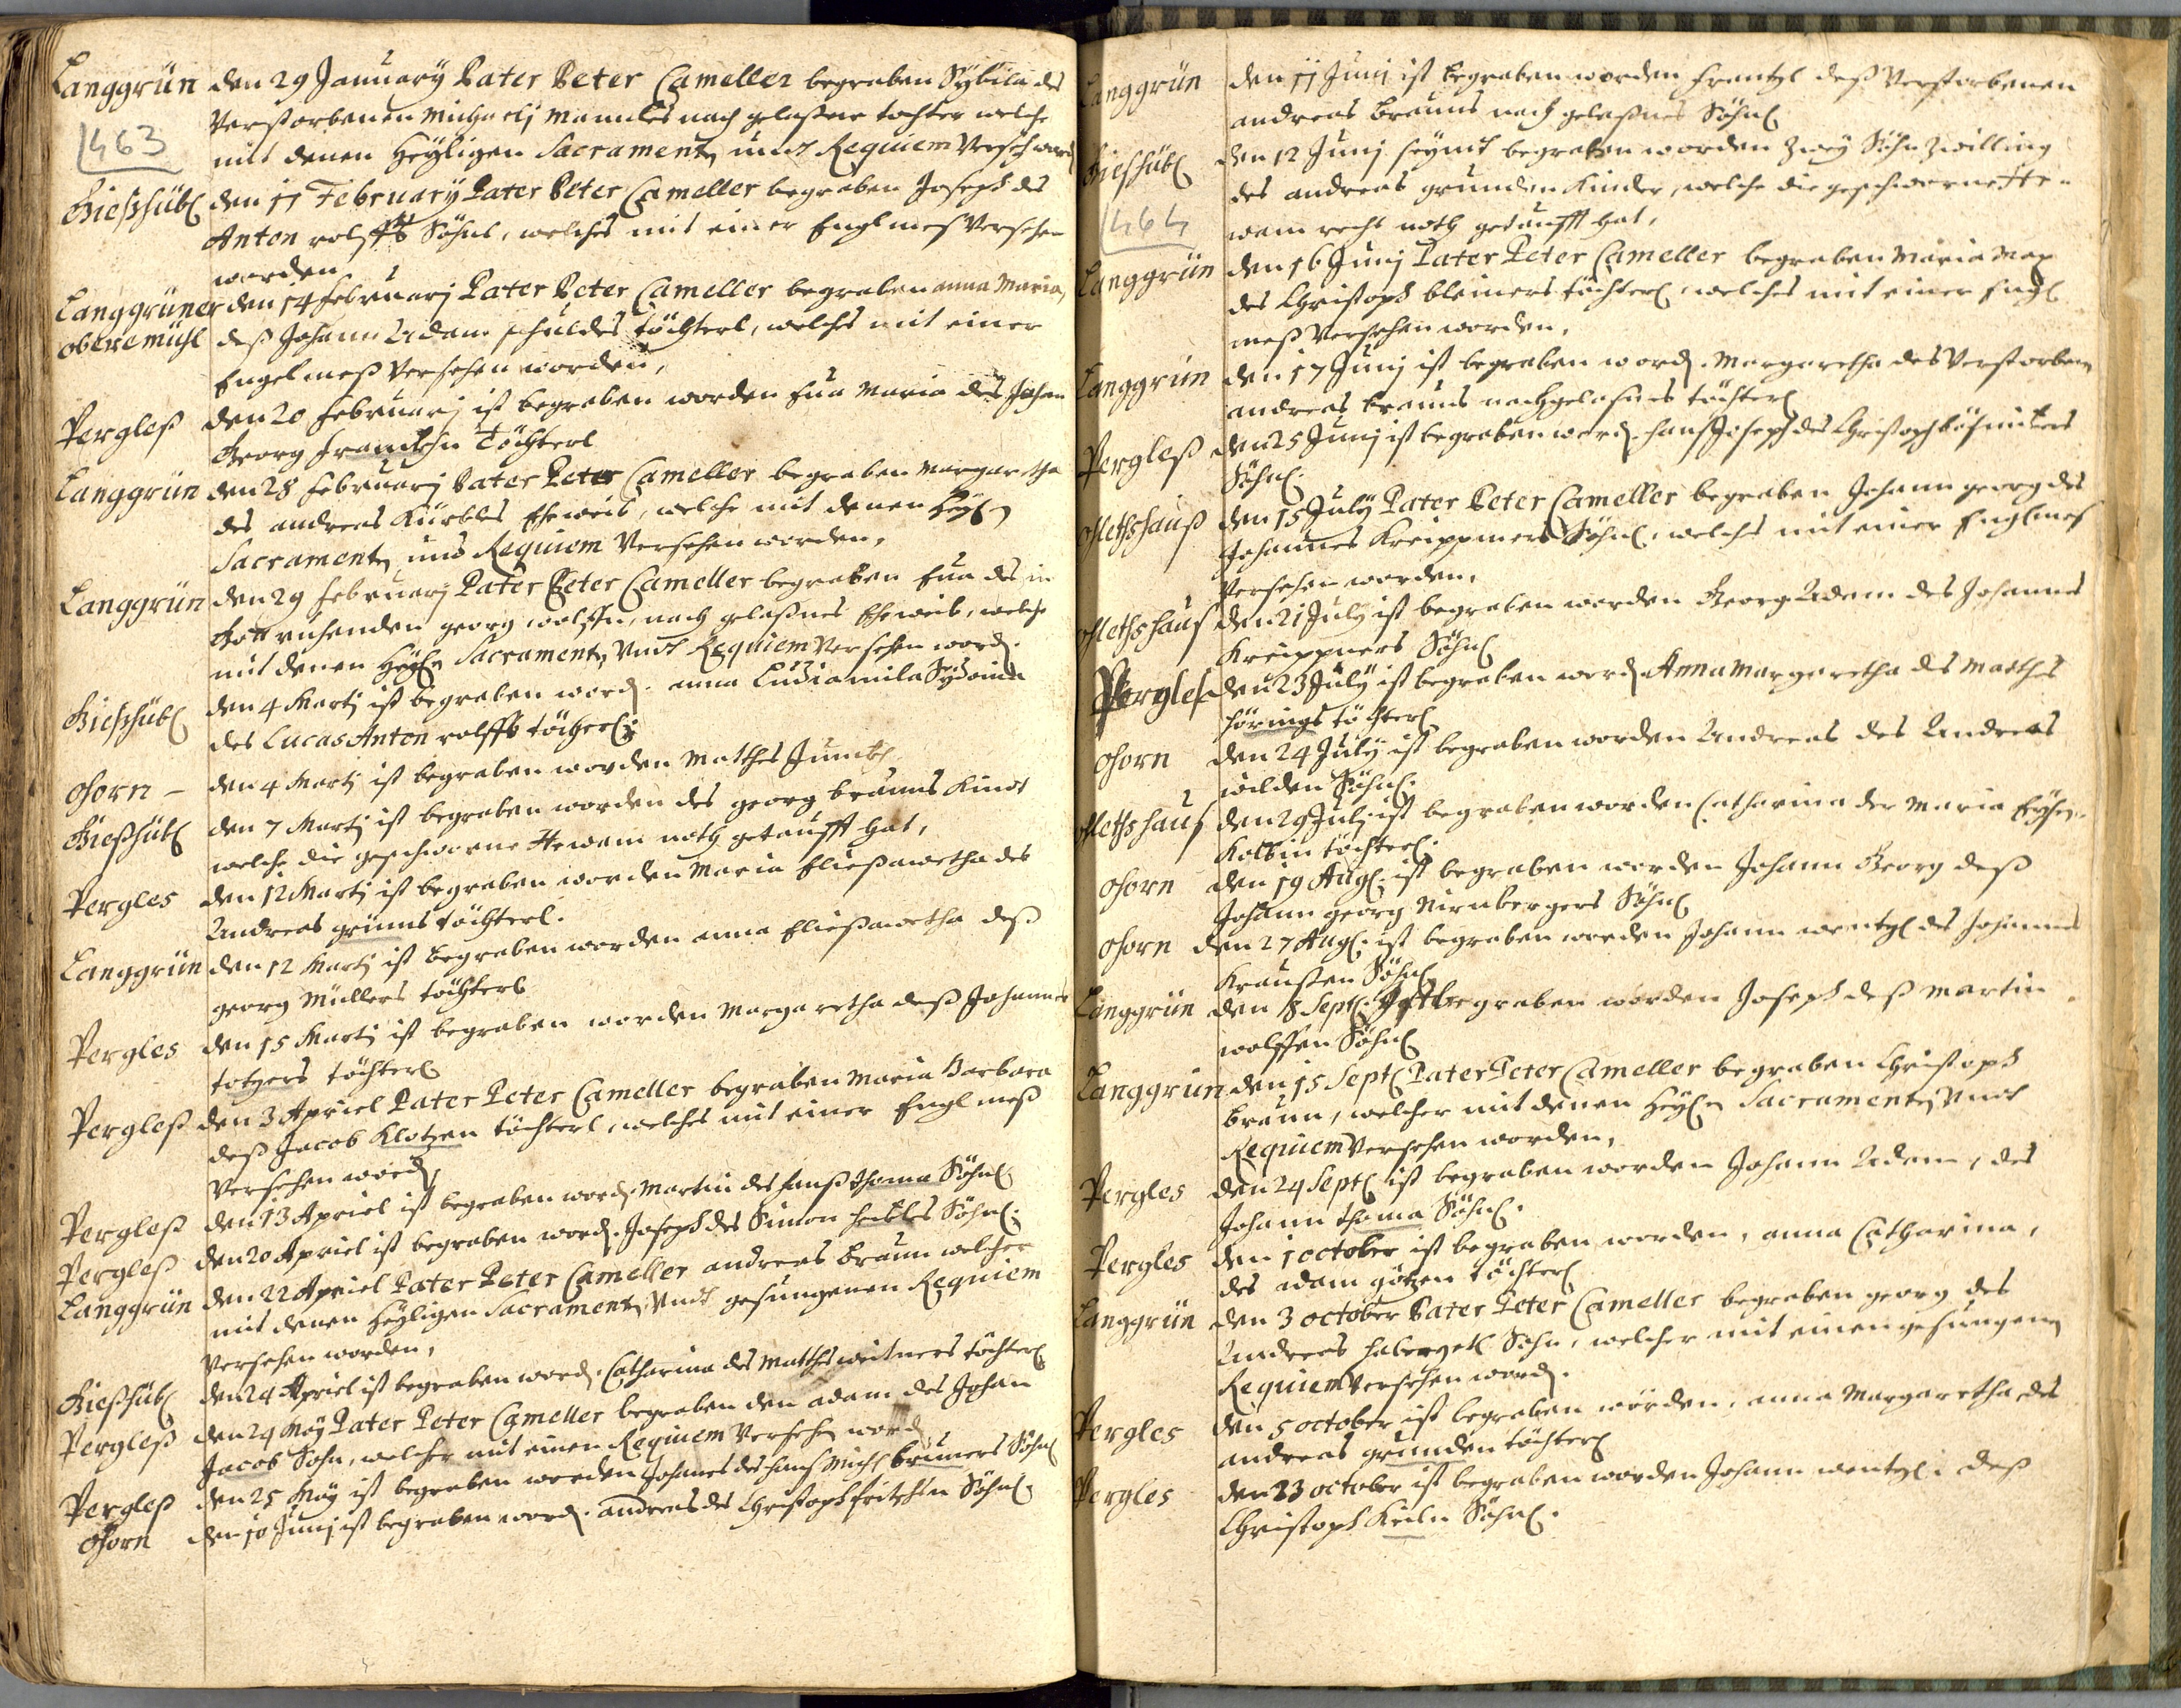 Langgrün den 29 Januarÿ Pater Peter Cameller begraben Sybilla des
verstorbenen Michaelj Mannles nach gelaßene tochter welche
463
mit denen Heÿligen Sacramenten undt Requiem Versch word
Gießhübl den 11 Februarÿ Pater Peter Cameller begraben Joseph des
Anton rolffts Söhnl, welches mit einer Englmeß Versehen
worden
Langgrüner den 14 februarj Pater Peter Cameller begraben anna Maria,
obere mühl deß Johann Adam schuldes töchterl, welches mit einer
Engel meß Versehen worden,
Pergleß den 20 februarj ist begraben worden Eua Maria des Johan
Georg frankhn Töchterl
Langgrün den 28 februarj Pater Peter Cameller begraben Margaretha
des andreas Kürbles Eheweib, welche mit denen Heÿl:
Sacramenten und Requiem Versehen worden,
Langgrün den 29 februarj Pater Peter Cameller begraben Eua des in
Gott ruhenden georg wolffn, nach gelaßnes Eheweib, welche
mit denen Heÿln Sacramenten Undt Requiem Versehen word.
Gießhübl den 4 Martj ist begraben word. anna Ludiamila Sydonia
des Lucas Anton rolffts töchterl:
Ohorn – den 4 Martj ist begraben worden Matthes
Gießhübl den 7 Martj ist begraben worden des georg brauns Kindt
welche die geschworne Hewam noth getaufft hat,
Pergles den 12 Martj ist begraben worden Maria Eließawetha des
Andreas grüns töchterl.
Langgrün den 12 Martj ist begraben worden anna Eließawetha deß
georg Müllers töchterl
Pergles den 15 Martj ist begraben worden Margaretha deß Johannes
totzers töchterl
Pergleß den 3 Apriel Pater Peter Cameller begraben Maria Barbara
deß Jacob Klotzen töchterl, welches mit einer Engl meß
Versehen word,
Pergleß den 13 Apriel ist begraben word. Martin des hanß thoma Söhnl
Pergleß den 20 Apriel ist begraben word. Joseph des Simon heibles Söhnl.
Langgrün den 22 Apriel Pater Peter Cameller andreas Braun welcher
mit denen Heÿligen Sacramenten, Undt gesungenen Requiem
Versehen worden,
Gießhübl den 24 Apriel ist begraben word. Catharina des Matthes weitners töchterl
Pergleß den 24 Maÿ Pater Peter Cameller begraben den adam des Johan
Jacob Sohn, welcher mit einen Requiem Versehen word
Pergleß den 25 Maÿ ist begraben worden Johanes des hanß Michl brüners Söhnl
Ohorn den 10 Junj ist begraben word. andreas des Christoph fritschn Söhnl.
Langgrün den 11 Junj ist begraben worden frantzl deß Verstorbenen
andreas Brauns nach gelaßnes Söhnl
Gießhübl den 12 Junj seÿnt begraben worden Zweÿ Söhn Zwilling
des andreas grunden Kinder, welche die geschworne He-
464
wam recht noth getaufft hat,
Langgrün den 16 Junj Pater Peter Cameller begraben Maria
des Christoph bleiners töchterl, welches mit einer Engl
meß Versehen worden,
Langgrün den 17 Junj ist begraben word. Margaretha des Verstorbenen
andreas brauns nachgelaßnes töchterl
Pergleß den 25 Junj ist begraben word. hanß Joseph des Christoph
Söhnl.
den 15 Julÿ Pater Peter Cameller begraben Johann georg des
Johannes Kreippners Söhnl, welches mit einer Englmeß
Versehen worden,
den 21 Julÿ ist begraben worden Georg Adam des Johannes
Kreippners Söhnl
Pergleß den 23 Julÿ ist begraben word. Anna Margaretha des Matthes
hörings töchterl
Ohorn den 24 Julÿ ist begraben worden Andreas des Andreas
wilden Söhnl.
den 29 Julj ist begraben worden Catharina der Maria
Kolbin töchterl.
Ohorn den 19 Augl. ist begraben worden Johann Georg deß
Johann georg Nirnbergers Söhnl
Ohorn den 27 Augl. ist begraben worden Johann wentzl des Johannes
Kraußen Söhnl
Langgrün den 8 Septl. Ist begraben worden Joseph deß Martin
wolffen Söhnl
Langgrün den 15 Septl Pater Peter Cameller begraben Christoph
braun, welcher mit denen Heÿln Sacramenten Undt
Requiem Versehen worden,
Pergles den 24 Septl ist begraben worden Johann Adam, des
Johann thoma Söhnl.
Pergles den 1 october ist begraben worden, anna Catharina,
des adam götzen töchterl
Langgrün den 3 october Pater Peter Cameller begraben georg des
Andreas haberzetl Sohn, welcher mit einen gesungenen
Requiem Versehen word.
Pergles den 5 october ist begraben worden, anna Margaretha des
andreas grunden töchterl
Pergles den 23 october ist begraben worden Johann wentzl: deß
Christoph Keiln Söhnl.